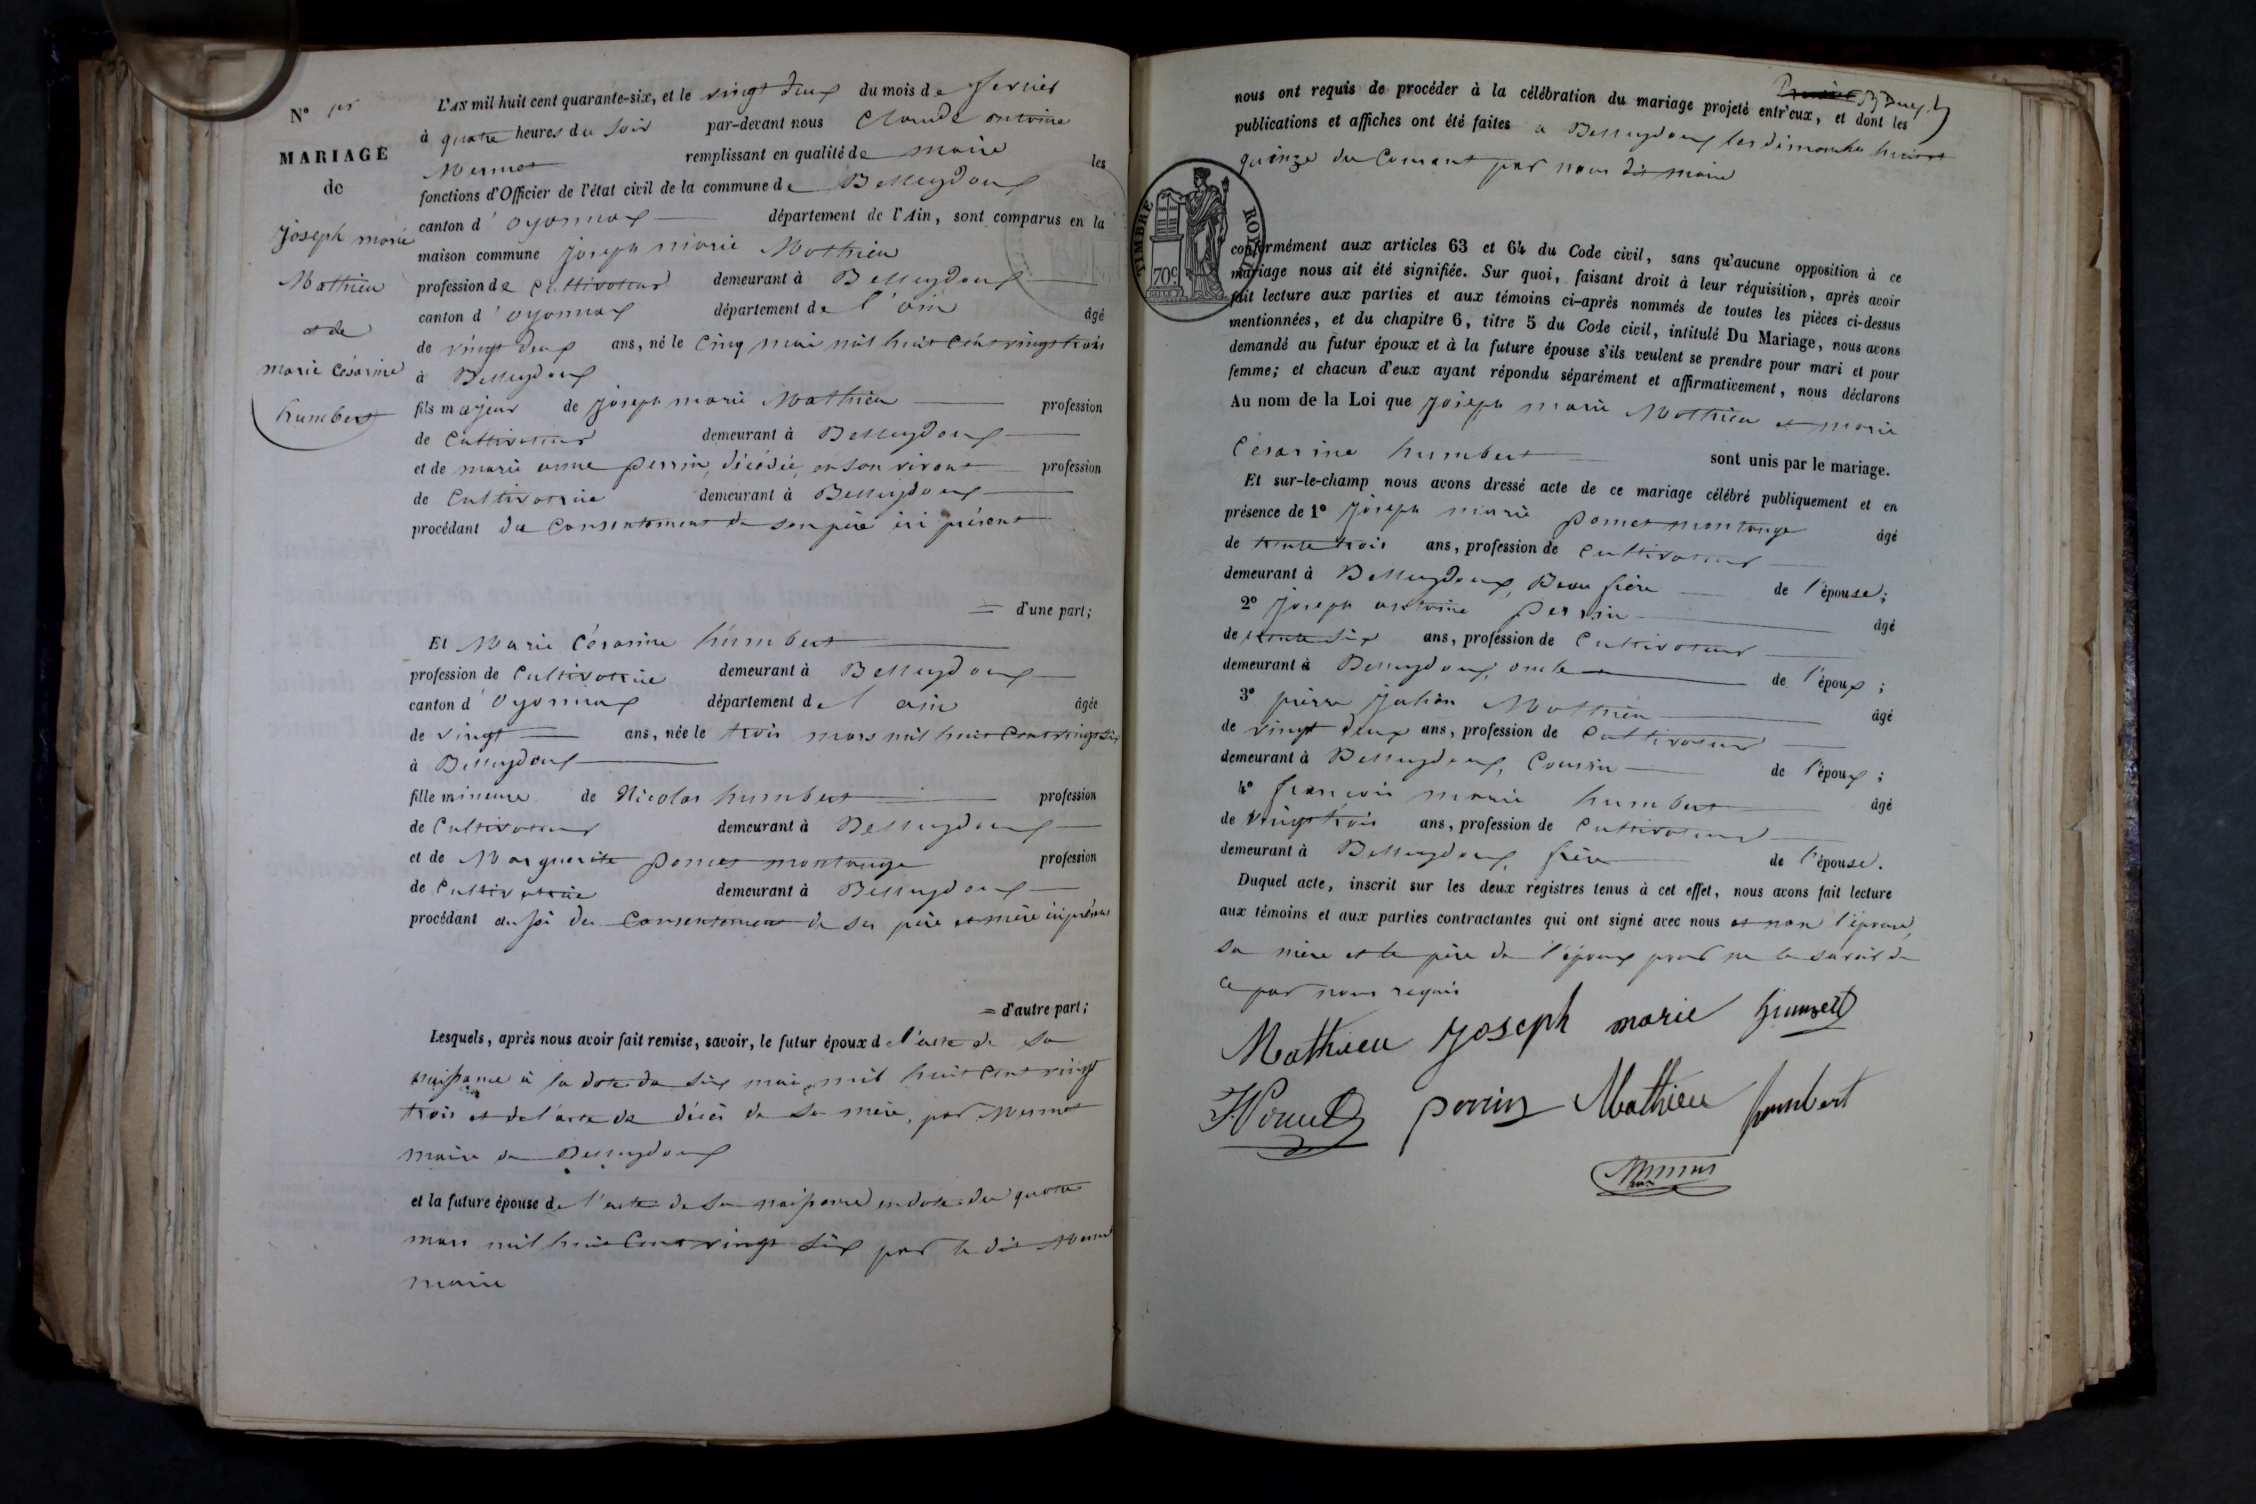 N° 1er
MARIAGE
de
Joseph marie
Mathieu
et de
marie Césarine
humbert
L'AN mil huit cent quarante-six, et le vingt deux du mois de fevrier
à quatre heures du soir par-devant nous Claude antoine
Mermet remplissant en qualité de maire les
fonctions d'Officier de l'état civil de la commune de Belleydoux
canton d'oyonnax département de l'Ain, sont comparus en la
maison commune joseph marie Mathieu
profession de cultivateur demeurant à Belleydoux
canton d'oyonnax département de l'ain âgé
de vingt deux ans, né le cinq mai mil huit cent vingt trois
à Belleydoux
fils majeur de joseph marie Mathieu profession
de cultivateur demeurant à Belleydoux
et de marie anne perrin, décédée, en son vivant profession
de cultivatrice demeurant à Belleydoux
procédant du consentement de son père ici présent
d'une part;
Et Marie Césarine humbert
profession de cultivatrice demeurant à Belleydoux
canton d'oyonnax département de l'ain âgée
de vingt ans, née le trois mars mil huit cent vingt six
à Belleydoux
fille mineure de Nicolas humbert profession
de cultivateur demeurant à Belleydoux
et de Marguerite poncet montange profession
de cultivatrice demeurant à Belleydoux
procédant aussi du consentement de ses père et mère ici présens
d'autre part;
Lesquels, après nous avoir fait remise, savoir, le futur époux de l'acte de sa
naissance à la date du six mai mil huit cent vingt
trois et de l'acte de décès de sa mère, par Mermet
maire de Belleydoux
et la future épouse de l'acte de sa naissance en date du quatre
mars mil huit cent vingt six par le dit Mermet
maire
nous ont requis de procéder à la célébration du mariage projeté entr'eux, et dont les
publications et affiches ont été faites à Belleydoux les dimanches huit et
quinze du courant par nous dit maire
TIMBRE ROYAL
70c
conformément aux articles 63 et 64 du Code civil, sans qu'aucune opposition à ce
mariage nous ait été signifiée. Sur quoi, faisant droit à leur réquisition, après avoir
fait lecture aux parties et aux témoins ci-après nommés de toutes les pièces ci-dessus
mentionnées, et du chapitre 6, titre 5 du Code civil, intitulé Du Mariage, nous avons
demandé au futur époux et à la future épouse s'ils veulent se prendre pour mari et pour
femme; et chacun d'eux ayant répondu séparément et affirmativement, nous déclarons
Au nom de la Loi que joseph marie Mathieu et marie
Césarine humbert sont unis par le mariage.
Et sur-le-champ nous avons dressé acte de ce mariage célébré publiquement et en
présence de 1° joseph marie poncet montange âgé
de trente trois ans, profession de cultivateur
demeurant à Belleydoux, Beau frère de l'épouse;
2° joseph antoine perrin âgé
de trente six ans, profession de cultivateur
demeurant à Belleydoux, oncle de l'époux;
3° pierre julien Mathieu âgé
de vingt deux ans, profession de cultivateur
demeurant à Belleydoux, Cousin de l'époux;
4° françois marie humbert âgé
de vingt trois ans, profession de cultivateur
demeurant à Belleydoux, frère de l'épouse.
Duquel acte, inscrit sur les deux registres tenus à cet effet, nous avons fait lecture
aux témoins et aux parties contractantes qui ont signé avec nous et non l'épouse,
sa mère et le père de l'époux pour ne le savoir de
ce par nous requis
Mathieu Joseph marie humbert
perrin Mathieu humbert
Mermet